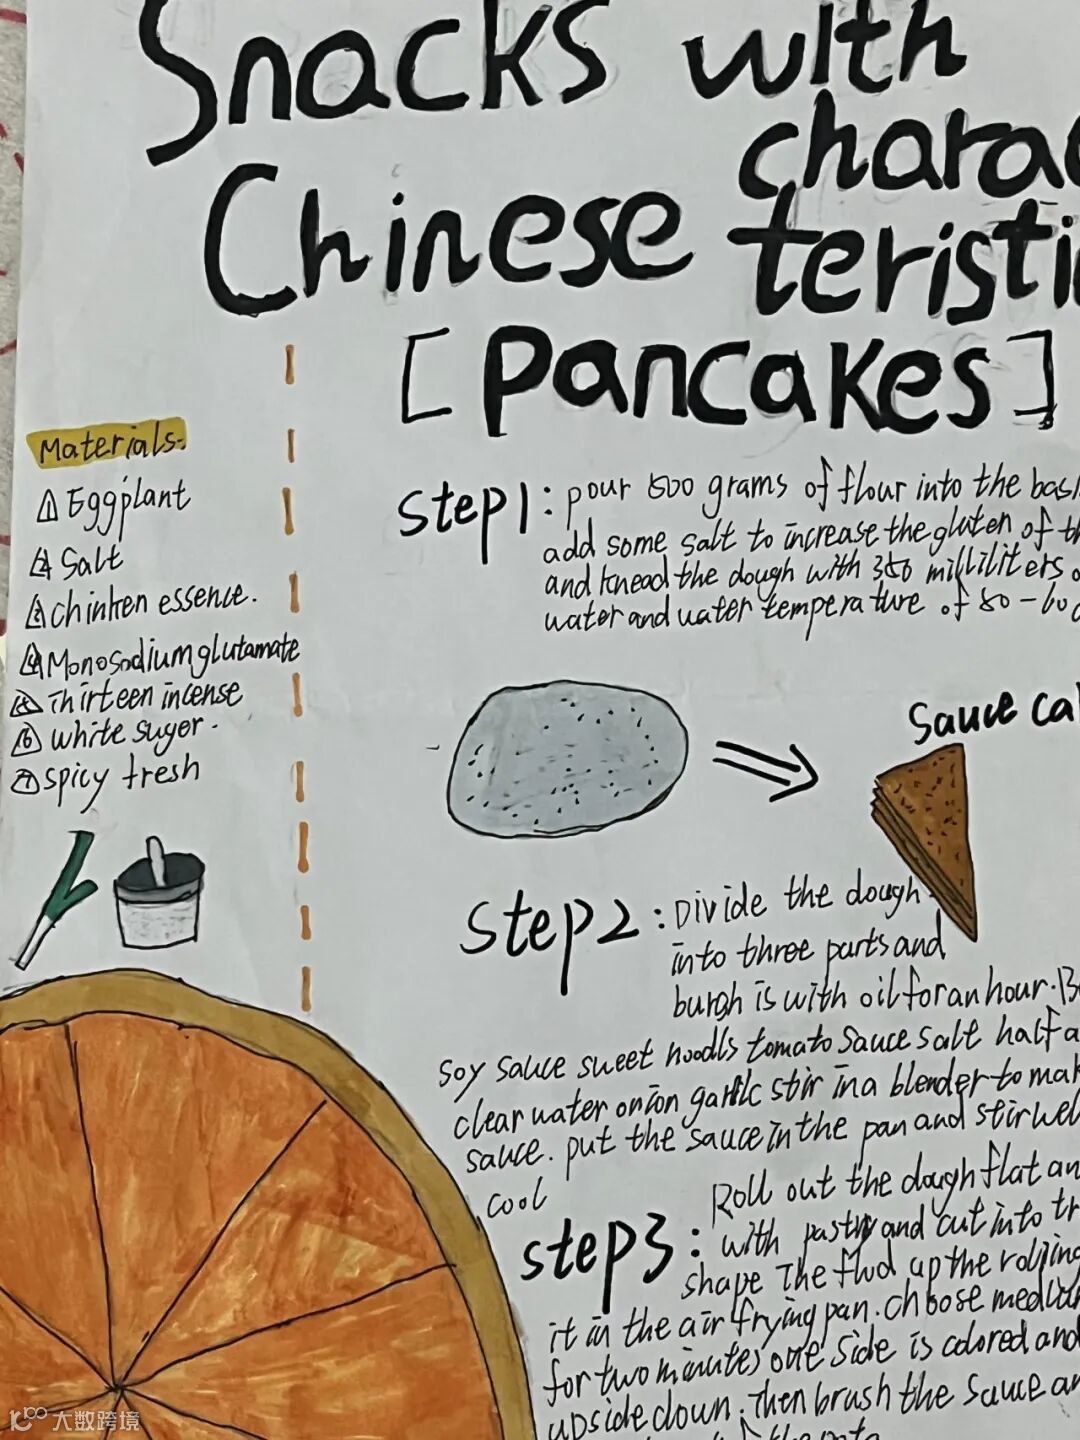 Snacks with
Chinese charac
teristi
[Pancakes]
Materials:
1 Eggplant
2 Salt
3 chinken essence.
4 Monosodium glutamate
5 Thirteen incense
6 white suger.
7 spicy fresh
step1: pour 500 grams of flour into the bas
add some salt to increase the gluten of th
and knead the dough with 350 milliliters o
water and water temperature of 50-60
Sauce ca
step2: Divide the dough
into three parts and
is with oil for an hour.
soy sauce sweet noodls tomato sauce salt half a
clear water onion garlic stir in a blender to mak
sauce. put the sauce in the pan and stir wel
cool
step3: Roll out the dough flat an
with pastry and cut into tr
shape The up the rolling
it in the air frying pan. choose mediu
for two minutes one side is colored and
upside down. Then brush the sauce an
大数跨境